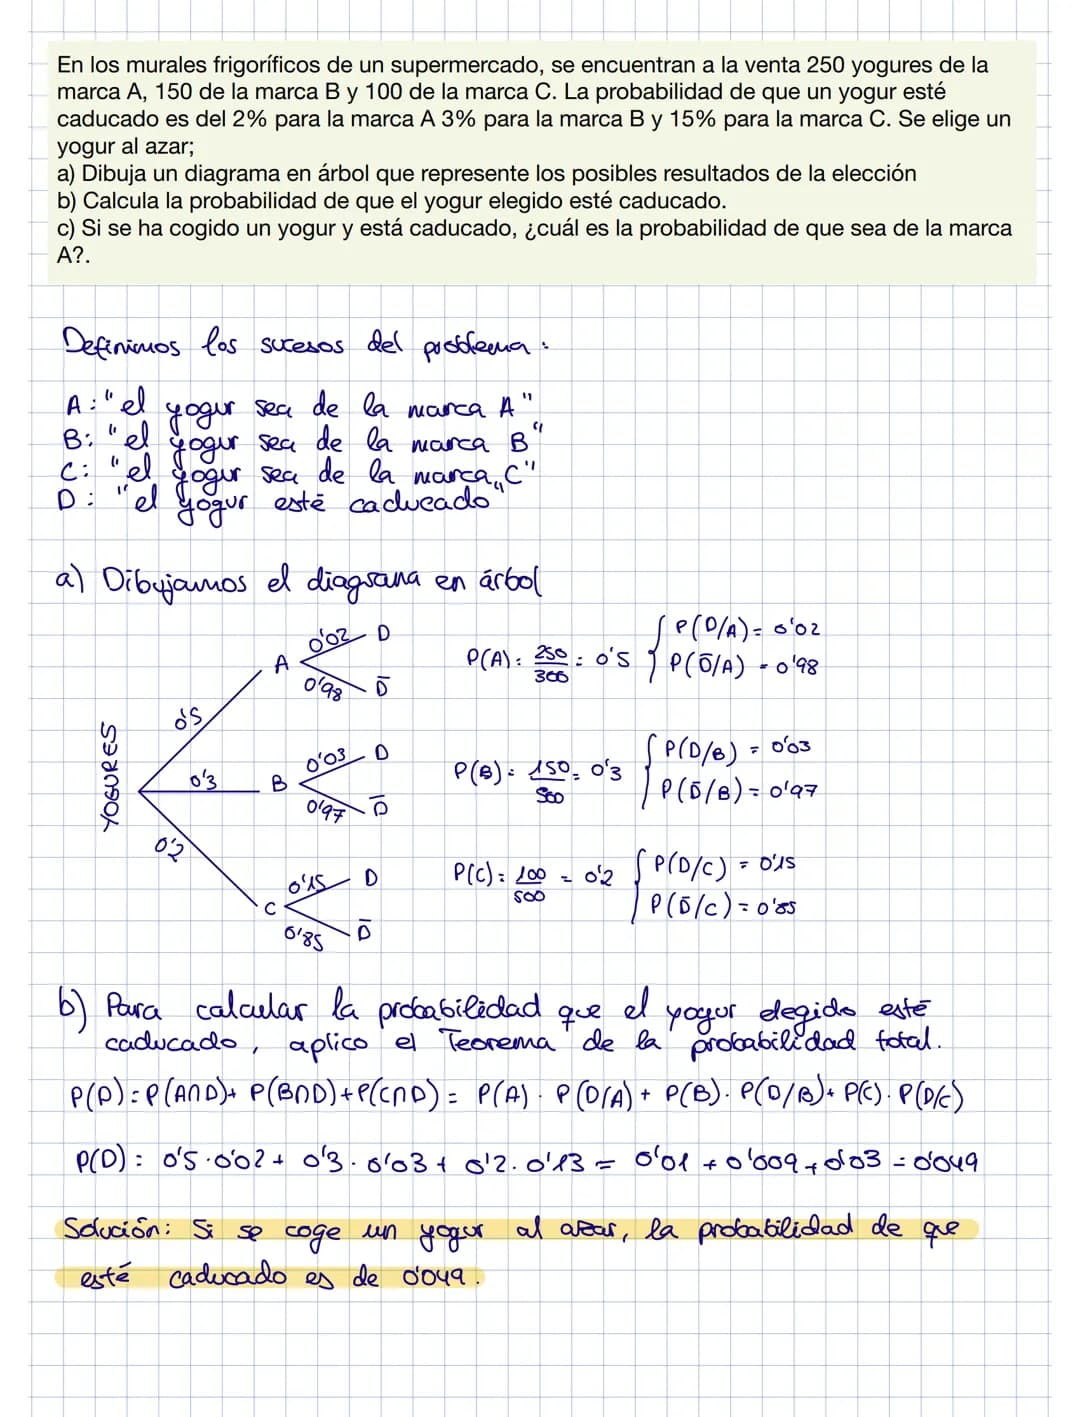 En los murales frigoríficos de un supermercado, se encuentran a la venta 250 yogures de la
marca A, 150 de la marca B y 100 de la marca C. La probabilidad de que un yogur esté
caducado es del 2% para la marca A 3% para la marca B y 15% para la marca C. Se elige un
yogur al azar;
a) Dibuja un diagrama en árbol que represente los posibles resultados de la elección
b) Calcula la probabilidad de que el yogur elegido esté caducado.
c) Si se ha cogido un yogur y está caducado, ¿cuál es la probabilidad de que sea de la marca
A?.
Definimos los sucesos del problema:
A: "el yogur sea de la marca A"
B: "el yogur sea de la marca B"
C: "el yogur sea de la marca C"
D: "el yogur esté caducado"
a) Dibujamos el diagrama en árbol
YOGURES
0'5 A 0'02 D
0'98 D̄
P(A): 250/300 = 0'5 { P(D/A) = 0'02
P(D̄/A) = 0'98
0'3 B 0'03 D
0'97 D̄
P(B) = 150/500 = 0'3 { P(D/B) = 0'03
P(D̄/B) = 0'97
0'2 C 0'15 D
0'85 D̄
P(C) = 100/500 = 0'2 { P(D/C) = 0'15
P(D̄/C) = 0'85
b) Para calcular la probabilidad que el yogur elegido esté
caducado, aplico el Teorema de la probabilidad total.
P(D) = P(A∩D) + P(B∩D) + P(C∩D) = P(A) · P(D/A) + P(B) · P(D/B) + P(C) · P(D/C)
P(D) = 0'5 · 0'02 + 0'3 · 0'03 + 0'2 · 0'13 = 0'01 + 0'009 + 0'03 = 0'049
Solución: Si se coge un yogur al azar, la probabilidad de que
esté caducado es de 0'049.